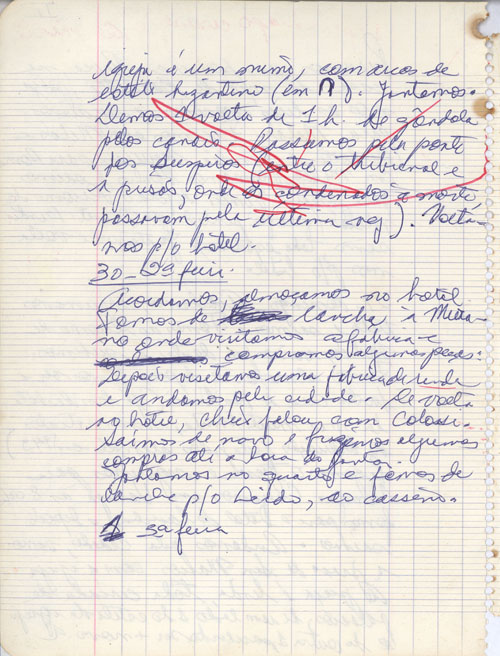 igreja é um mimo, com arcos de
estilo bizantino (em ∩). Jantamos.
Demos 1 volta de 1 h. de gôndola
pelos canais. Passamos pela ponte
dos Suspiros (entre o tribunal e
a prisão, onde os condenados à morte
passavam pela última vez). Volta-
mos p/o hotel.
30 - 2ª feira.
Acordamos, almoçamos no hotel
Fomos de lancha à Mura-
no onde visitamos a fábrica e
compramos algumas peças.
Depois visitamos uma fábrica de renda
e andamos pela cidade. De volta
ao hotel, falou com Colassi.
Saímos de novo e fizemos algumas
compras até a hora do jantar.
Jantamos no quarto e fomos de
lancha p/o Lido, ao cassino.
1 3ª feira